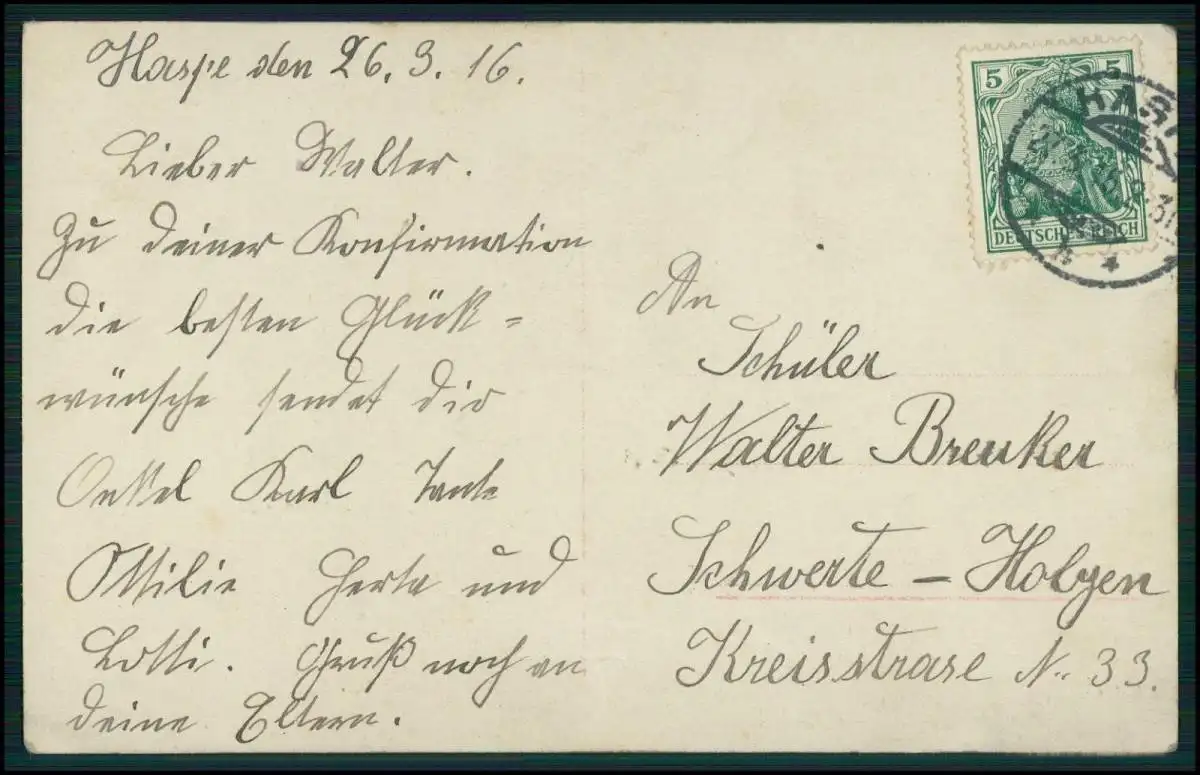 Haspe den 26. 3. 16.
Lieber Walter.
Zu deiner Konfirmation
die besten Glück-
wünsche sendet dir
Onkel Karl Tante
Ottilie Herta und
Lotti. Gruß noch an
deine Eltern.
5 5
DEUTSCHES REICH
HASP
An
Schüler
Walter Breuker
Schwerte – Holzen
Kreisstrase N. 33.